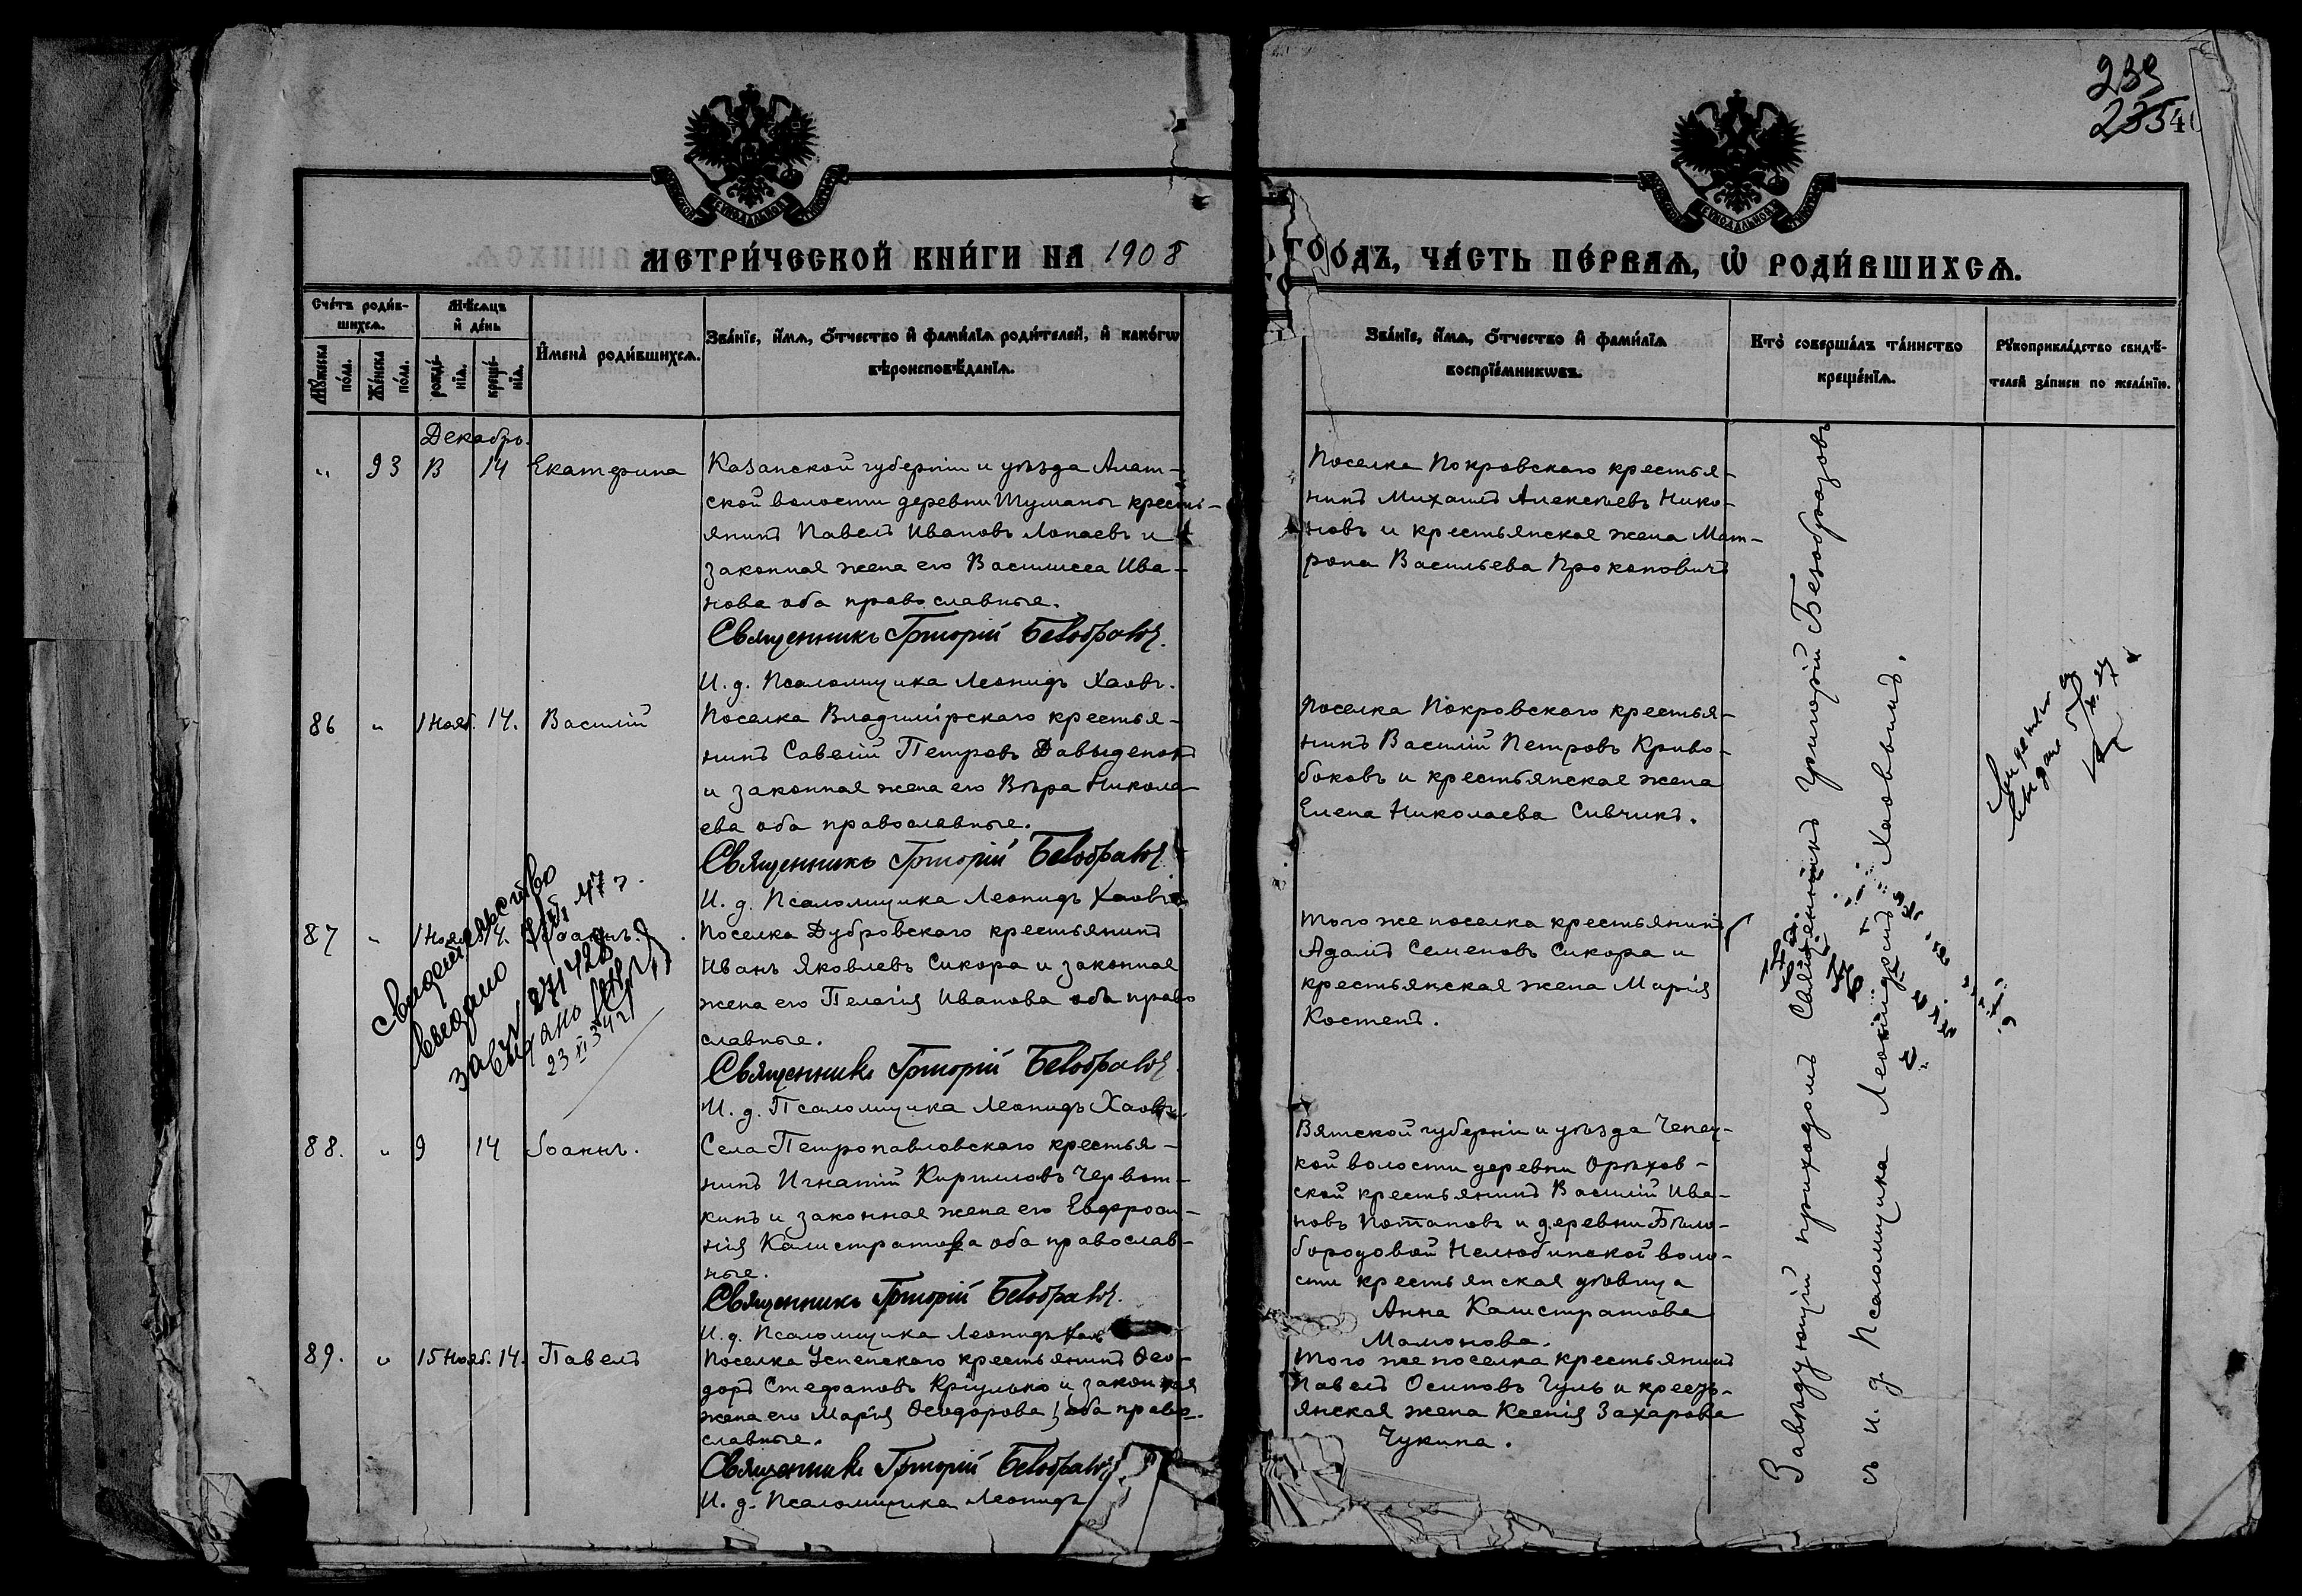 239
235
40
МЕТРИ́ЧЕСКОЙ КНИ́ГИ НА 1908
ГО́ДЪ, ЧА́СТЬ ПЕ́РВАѦ, Ѡ҆ РОДИ́ВШИХСѦ.
Сче́тъ роди́в-
шихсѧ.
Мѣ́сѧцъ
и҆ де́нь
Мꙋ́жеска
по́ла.
Же́нска
по́ла.
рожде́-
нїѧ.
креще́-
нїѧ.
И҆мена̀ роди́вшихсѧ.
Зва́нїе, и҆́мѧ, ѻ҆́тчество и҆ фами́лїѧ роди́телей, и҆ како́гѡ
вѣроисповѣ́данїѧ.
Зва́нїе, и҆́мѧ, ѻ҆́тчество и҆ фами́лїѧ
воспрїе́мникѡвъ.
Кто̀ соверша́лъ та́инство
креще́нїѧ.
Рꙋкоприкла́дство свидѣ́-
телей за́писи по жела́нїю.
Декабрь.
„ 93 8 14 Екатерина
Казанской губерніи и уѣзда Алат-
ской волости деревни Тумана кресть-
янинъ Павелъ Ивановъ Лопаевъ и
законная жена его Василисса Ива-
нова оба православные.
Священникъ Григорій Безобразовъ.
И. д. Псаломщика Леонидъ Хаовъ.
Поселка Покровскаго крестья-
нинъ Михаилъ Алексѣевъ Нико-
новъ и крестьянская жена Мат-
рона Васильева Прокоповичъ
86 „ 1 Нояб. 14. Василій
Поселка Владимірскаго крестья-
нинъ Савелій Петровъ Давыденокъ
и законная жена его Вѣра Никола-
ева оба православные.
Священникъ Григорій Безобразовъ
И. д. Псаломщика Леонидъ Хаовъ
Поселка Покровскаго крестья-
нинъ Василій Петровъ Криво-
боковъ и крестьянская жена
Елена Николаева Сивчикъ.
87 „ 1 Нояб. 14. Іоаннъ.
Поселка Дубровскаго крестьянинъ
Иванъ Яковлевъ Сикора и законная
жена его Пелагія Иванова оба право
славные.
Священникъ Григорій Безобразовъ
И. д. Псаломщика Леонидъ Хаовъ
Того же поселка крестьянинъ
Адамъ Семеновъ Сикора и
крестьянская жена Марія
Костенъ.
Свидетельство
введано
47 г.
выдано
23 XI 34 г
88. „ 9 14 Іоаннъ.
Села Петропавловскаго крестья-
нинъ Игнатій Кирилловъ Червот-
кинъ и законная жена его Евфроси-
нія Калистратова оба православ-
ные.
Священникъ Григорій Безобразовъ.
И. д. Псаломщика Леонидъ Хаов
Вятской губерніи и уѣзда Чепец-
кой волости деревни Орѣхов-
ской крестьянинъ Василій Ива-
новъ Потаповъ и деревни Бѣло-
бородовой Нелюбинской воло-
сти крестьянская дѣвица
Анна Калистратова
Мамонова.
89. „ 15 Нояб. 14. Павелъ
Поселка Успенскаго крестьянинъ Ѳео-
доръ Стефановъ Кріулько и законная
жена его Марія Ѳеодорова, оба право-
славные.
Священникъ Григорій Безобразовъ
И. д. Псаломщика Леонидъ
Того же поселка крестьянинъ
Павелъ Осиповъ Гуль и кресть-
янская жена Ксенія Захарова
Чукина.
Завѣдующій приходомъ Священникъ Григорій Безобразовъ
съ и. д. Псаломщика Леонидомъ Хаовымъ.